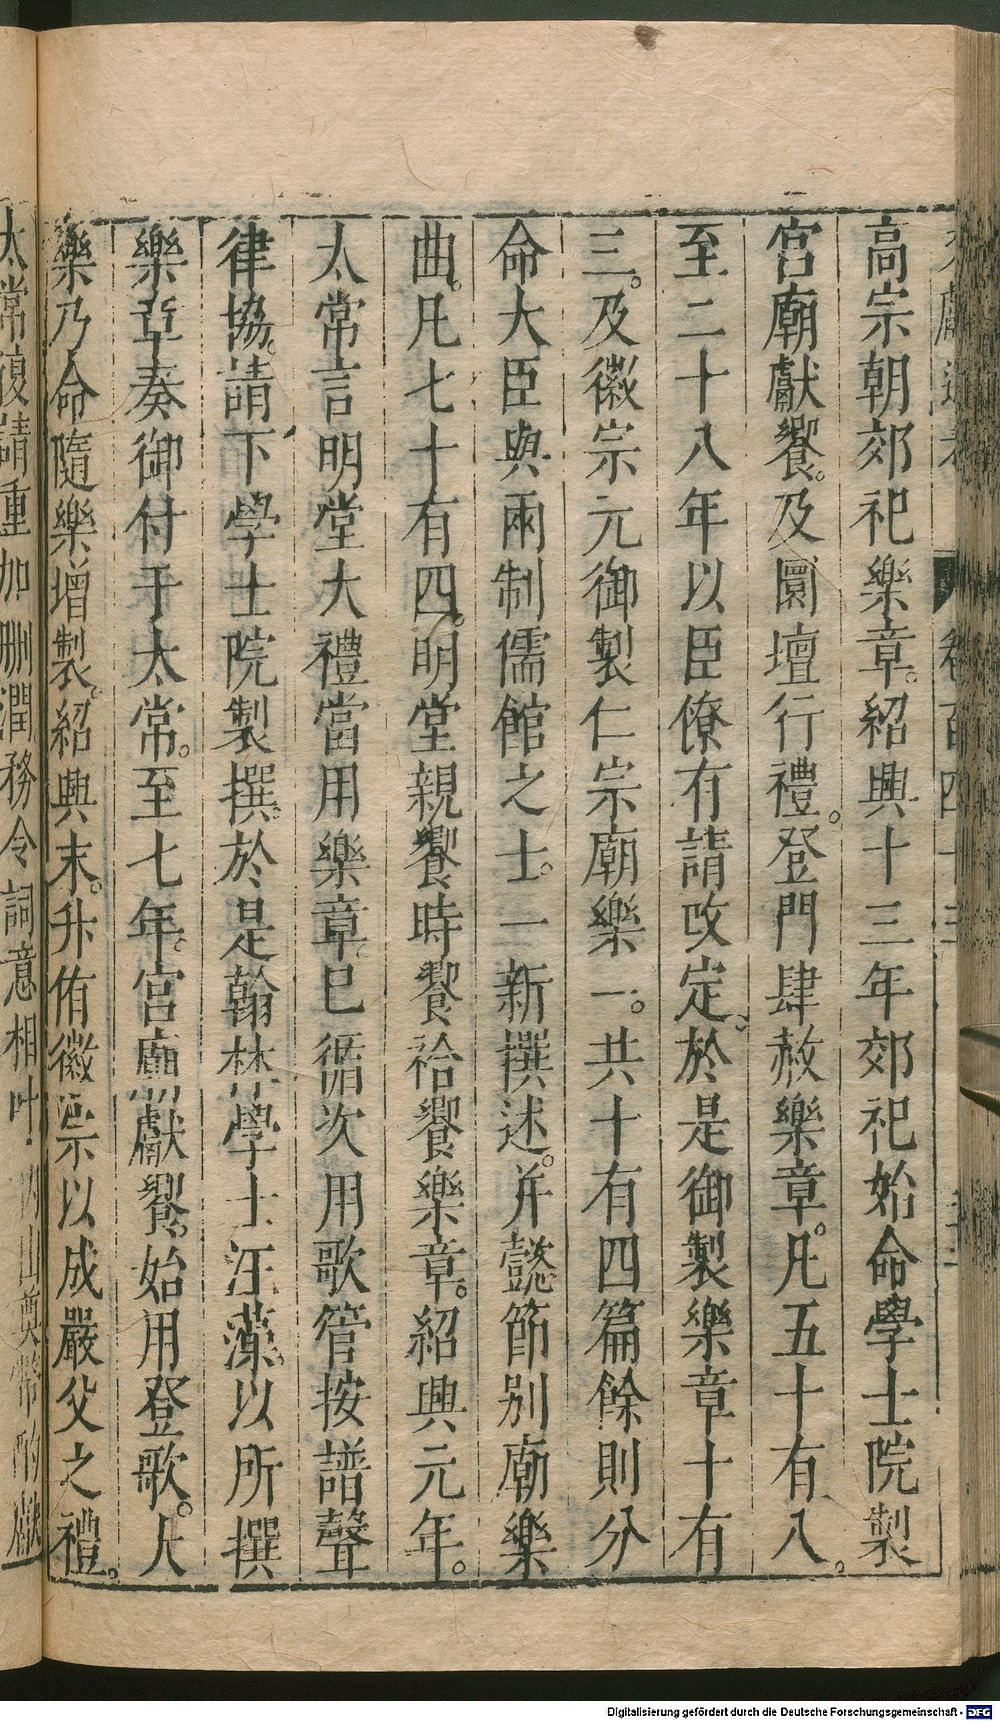 卷百四十三
高宗朝郊祀樂章。紹興十三年郊祀始命學士院製
宮廟獻饗。及圜壇行禮。登門肆赦樂章。凡五十有八。
至二十八年以臣僚有請改定。於是御製樂章十有
三。及徽宗元御製仁宗廟樂一。共十有四篇餘則分
命大臣與兩制儒館之士。一新撰述。并懿節別廟樂
曲。凡七十有四。明堂親饗時饗祫饗樂章。紹興元年。
太常言明堂大禮當用樂章。已循次用歌管按譜聲
律協。請下學士院製撰。於是翰林學士汪藻。以所撰
樂章奏御付于太常。至七年。宮廟獻饗。始用登歌。大
樂乃命隨樂增製。紹興末。升侑徽宗以成嚴父之禮。
太常復請重加刪潤務令詞意相叶
Digitalisierung gefördert durch die Deutsche Forschungsgemeinschaft - DFG